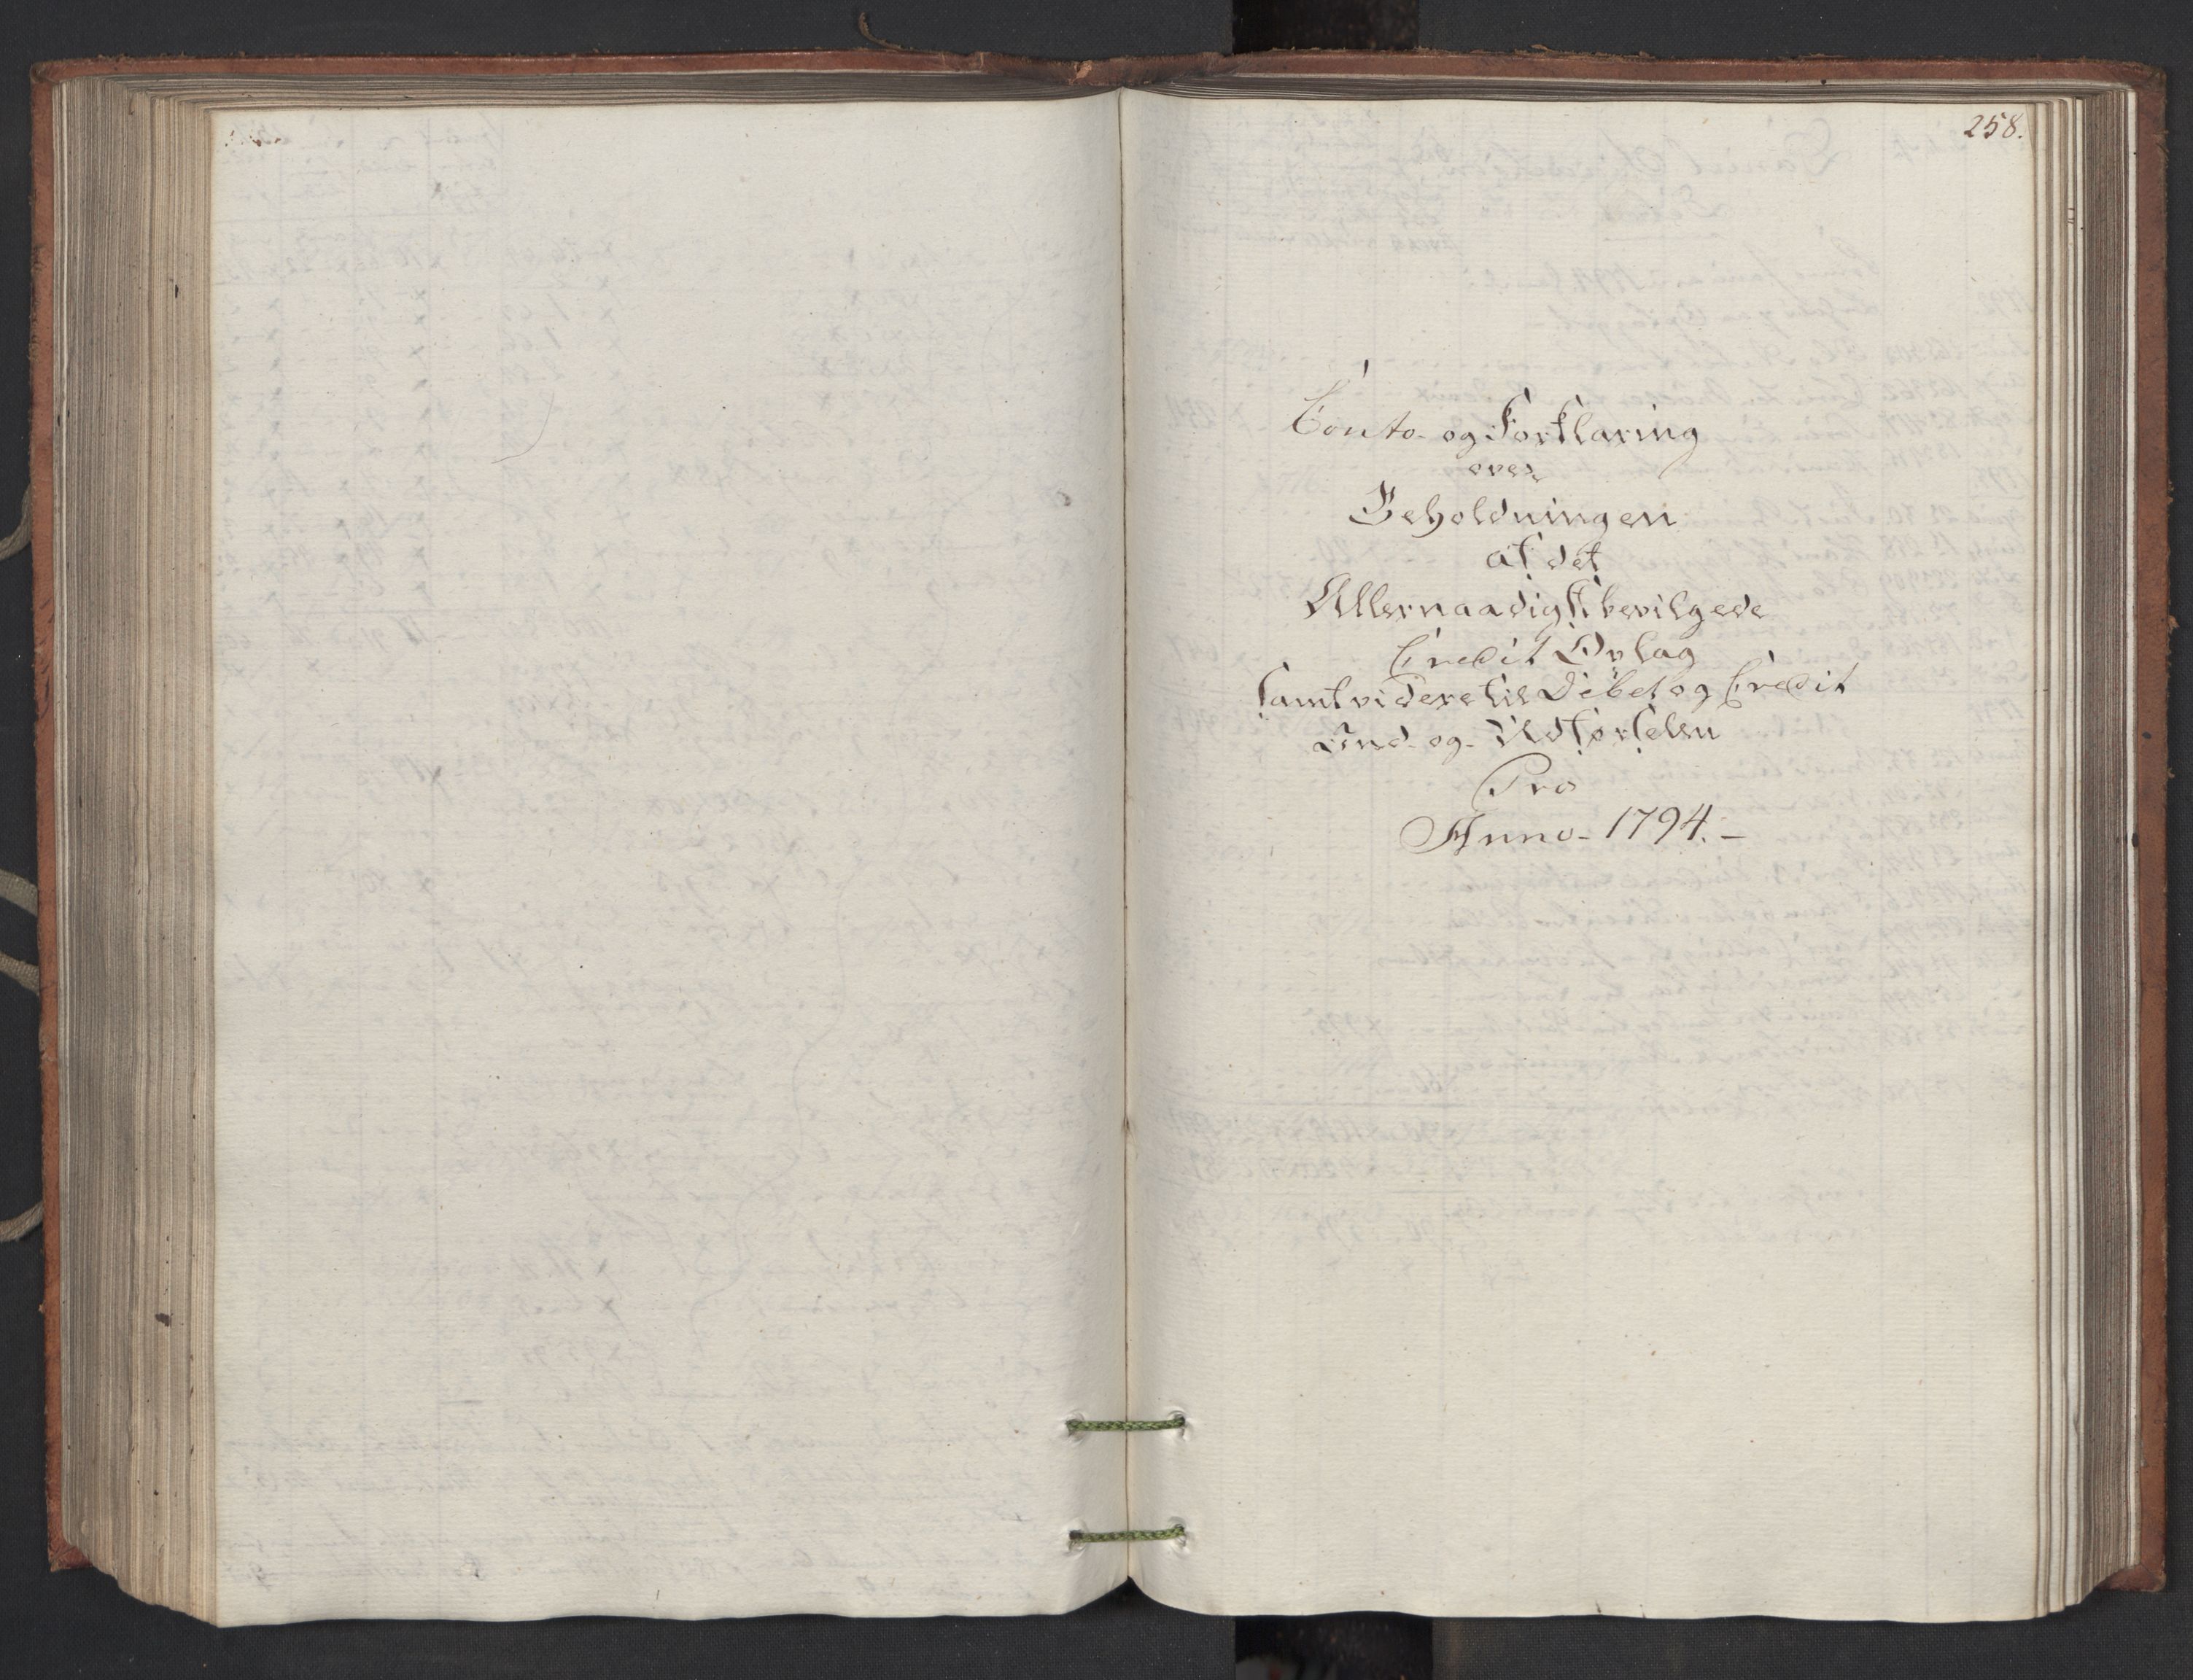 258.
Conto- og Forklaring
over
Beholdningen
af det
Allernaadigst bevilgede
Credit Oplag
samt videre til Debet og Credit
Ind- og- Udførselen
Pro
Anno- 1794.-